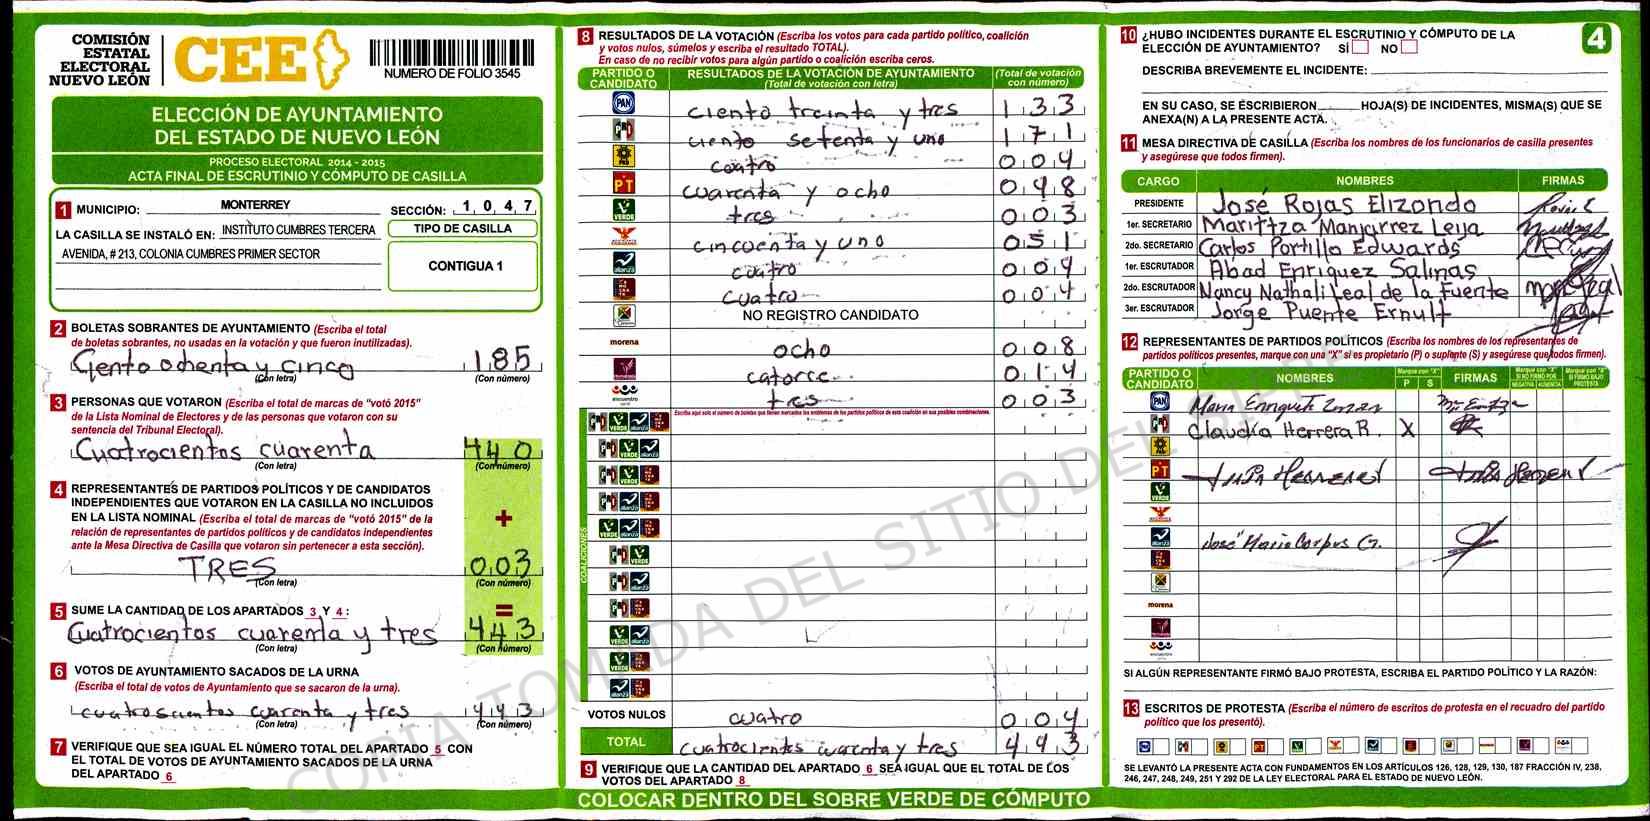 COMISIÓN
ESTATAL
ELECTORAL
NUEVO LEÓN
CEE
NUMERO DE FOLIO 3545
ELECCIÓN DE AYUNTAMIENTO
DEL ESTADO DE NUEVO LEÓN
PROCESO ELECTORAL 2014 - 2015
ACTA FINAL DE ESCRUTINIO Y CÓMPUTO DE CASILLA
1 MUNICIPIO: MONTERREY SECCIÓN: 1 0 4 7
LA CASILLA SE INSTALÓ EN: INSTITUTO CUMBRES TERCERA
AVENIDA, # 213, COLONIA CUMBRES PRIMER SECTOR
TIPO DE CASILLA
CONTIGUA 1
2 BOLETAS SOBRANTES DE AYUNTAMIENTO (Escriba el total
de boletas sobrantes, no usadas en la votación y que fueron inutilizadas).
Ciento ochenta y cinco 185
(Con letra) (Con número)
3 PERSONAS QUE VOTARON (Escriba el total de marcas de "votó 2015"
de la Lista Nominal de Electores y de las personas que votaron con su
sentencia del Tribunal Electoral).
Cuatrocientos cuarenta 440
(Con letra) (Con número)
4 REPRESENTANTES DE PARTIDOS POLÍTICOS Y DE CANDIDATOS
INDEPENDIENTES QUE VOTARON EN LA CASILLA NO INCLUIDOS
EN LA LISTA NOMINAL (Escriba el total de marcas de "votó 2015" de la
relación de representantes de partidos políticos y de candidatos independientes
ante la Mesa Directiva de Casilla que votaron sin pertenecer a esta sección).
+
TRES 003
(Con letra) (Con número)
5 SUME LA CANTIDAD DE LOS APARTADOS 3 Y 4 : =
Cuatrocientos cuarenta y tres 443
(Con letra) (Con número)
6 VOTOS DE AYUNTAMIENTO SACADOS DE LA URNA
(Escriba el total de votos de Ayuntamiento que se sacaron de la urna).
cuatroscientos cuarenta y tres 443
(Con letra) (Con número)
7 VERIFIQUE QUE SEA IGUAL EL NÚMERO TOTAL DEL APARTADO 5 CON
EL TOTAL DE VOTOS DE AYUNTAMIENTO SACADOS DE LA URNA
DEL APARTADO 6
8 RESULTADOS DE LA VOTACIÓN (Escriba los votos para cada partido político, coalición
y votos nulos, súmelos y escriba el resultado TOTAL).
En caso de no recibir votos para algún partido o coalición escriba ceros.
PARTIDO O CANDIDATO RESULTADOS DE LA VOTACIÓN DE AYUNTAMIENTO (Total de votación con letra) (Total de votación con número)
PAN ciento treinta y tres 133
PRI ciento setenta y uno 171
PRD cuatro 004
PT cuarenta y ocho 048
VERDE tres 003
cincuenta y uno 051
alianza cuatro 004
cuatro 004
NO REGISTRO CANDIDATO
morena ocho 008
catorce 014
encuentro tres 003
Escriba aquí solo el número de boletas que tienen marcados los emblemas de los partidos políticos de esta coalición en sus posibles combinaciones.
COALICIONES
VOTOS NULOS cuatro 004
TOTAL cuatrocientos cuarenta y tres 443
9 VERIFIQUE QUE LA CANTIDAD DEL APARTADO 6 SEA IGUAL QUE EL TOTAL DE LOS
VOTOS DEL APARTADO 8
COLOCAR DENTRO DEL SOBRE VERDE DE CÓMPUTO
10 ¿HUBO INCIDENTES DURANTE EL ESCRUTINIO Y CÓMPUTO DE LA
ELECCIÓN DE AYUNTAMIENTO? SÍ NO
4
DESCRIBA BREVEMENTE EL INCIDENTE:
EN SU CASO, SE ESCRIBIERON HOJA(S) DE INCIDENTES, MISMA(S) QUE SE
ANEXA(N) A LA PRESENTE ACTA.
11 MESA DIRECTIVA DE CASILLA (Escriba los nombres de los funcionarios de casilla presentes
y asegúrese que todos firmen).
CARGO NOMBRES FIRMAS
PRESIDENTE José Rojas Elizondo
1er. SECRETARIO Maritza Manjarrez Leija
2do. SECRETARIO Carlos Portillo Edwards
1er. ESCRUTADOR Abad Enriquez Salinas
2do. ESCRUTADOR Nancy Nathali Leal de la Fuente
3er. ESCRUTADOR Jorge Puente Ernult
12 REPRESENTANTES DE PARTIDOS POLÍTICOS (Escriba los nombres de los representantes de
partidos políticos presentes, marque con una "X" si es propietario (P) o suplente (S) y asegúrese que todos firmen).
PARTIDO O CANDIDATO NOMBRES Marque con "X" P S FIRMAS
PAN Maria Enriqueta
PRI Claudia Herrera R. X
PRD
PT
VERDE
alianza José Mario Corpus G.
morena
encuentro
SI ALGÚN REPRESENTANTE FIRMÓ BAJO PROTESTA, ESCRIBA EL PARTIDO POLÍTICO Y LA RAZÓN:
13 ESCRITOS DE PROTESTA (Escriba el número de escritos de protesta en el recuadro del partido
político que los presentó).
SE LEVANTÓ LA PRESENTE ACTA CON FUNDAMENTOS EN LOS ARTÍCULOS 126, 128, 129, 130, 187 FRACCIÓN IV, 238,
246, 247, 248, 249, 251 Y 292 DE LA LEY ELECTORAL PARA EL ESTADO DE NUEVO LEÓN.
COPIA TOMADA DEL SITIO DEL